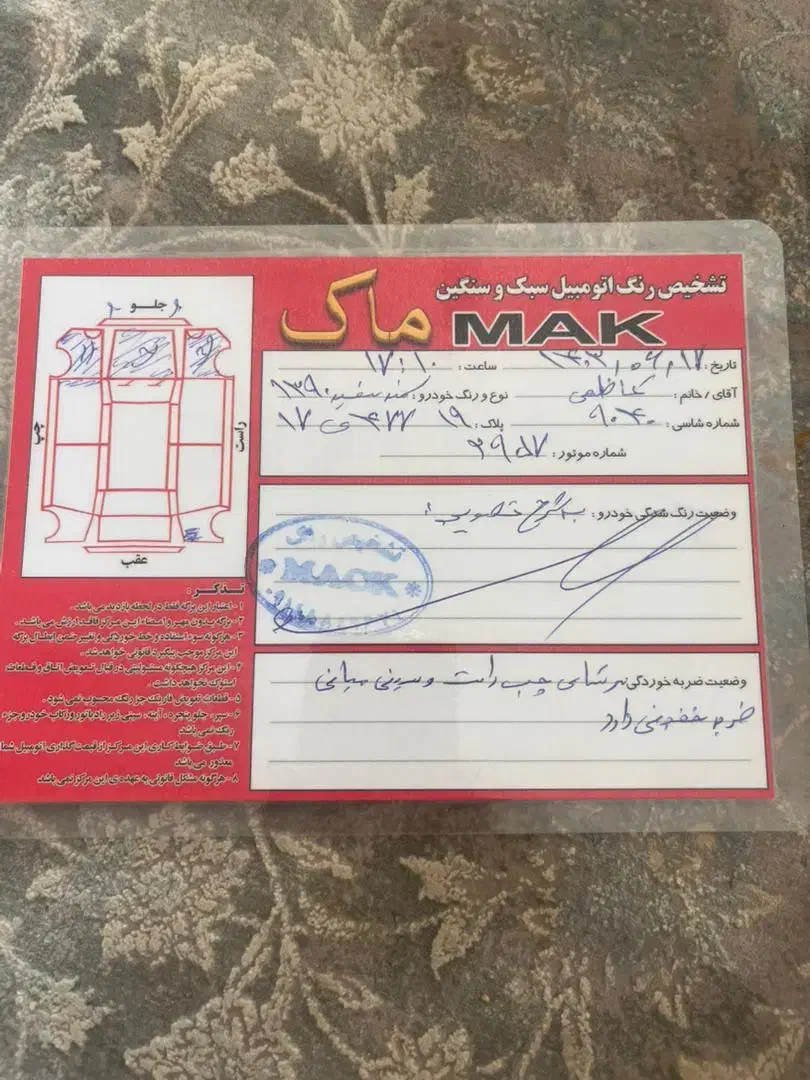 تشخیص رنگ اتومبیل سبک و سنگین
ماک
MAK
تاریخ: ۱۴۰۳/۰۶/۱۷ ساعت: ۱۷:۱۰
آقای / خانم: کاظمی نوع و رنگ خودرو: سفید ۱۳۹۰
شماره شاسی: ۹۰۴۰ پلاک: ۱۹ ۴۷۷ ی ۱۷
شماره موتور: ۳۹۵۷
وضعیت رنگ شدگی خودرو: به شرح تصویر:
تشخیص رنگ
MAOK
وضعیت ضربه خوردگی: سرشاسی چپ راست و سینی میانی
ضربه خفیف دارد
جلو
چپ
راست
عقب
تذکر:
۱- اعتبار این برگه فقط در لحظه بازدید می باشد.
۲- برگه بدون مهر و امضاء این مرکز فاقد ارزش می باشد.
۳- هرگونه سوء استفاده و خط خوردگی و تغییر ضمن ابطال برگه
این مرکز موجب پیگیرد قانونی خواهد شد.
۴- این مرکز هیچگونه مسئولیتی در قبال تعویض اتاق و قطعات
استوک نخواهد داشت.
۵- قطعات تعویض فابریک جز رنگ محسوب نمی شود.
۶- سپر، جلو پنجره، آینه، سینی زیر رادیاتور و رکاب خودرو جزء
رنگ نمی باشد
۷- طبق ضوابط کاری این مرکز از قیمت گذاری اتومبیل شما
معذور می باشد
۸- هرگونه مشکل قانونی به عهده ی این مرکز نمی باشد